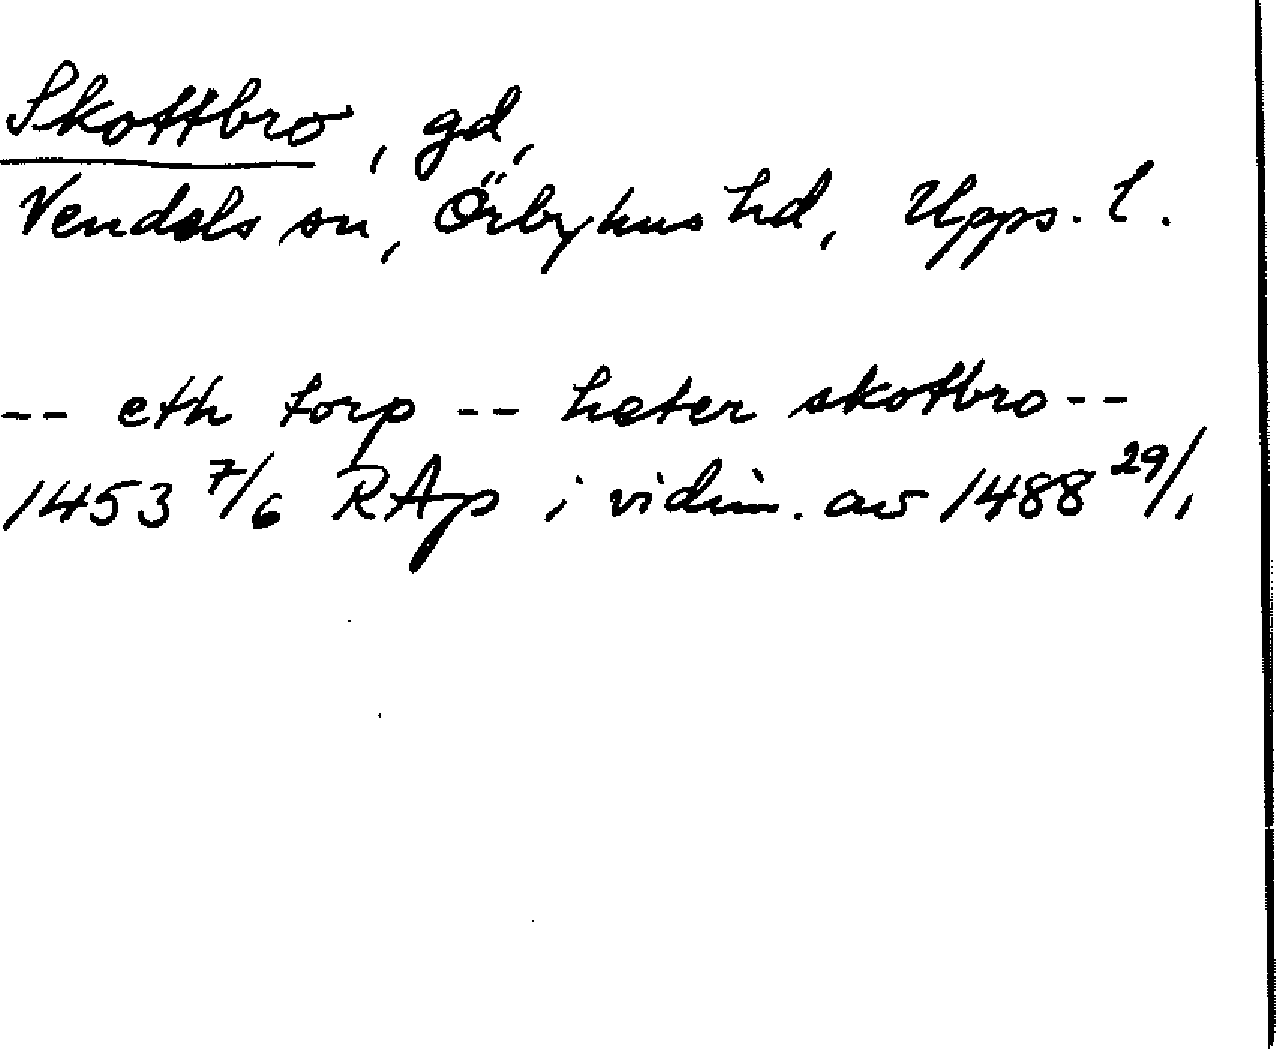 Skottbro, gd,
Vendels sn, Örbyhus hd, Upps. l.
-- eth torp -- heter skotbro --
1453 7/6 RAp i vidim. av 1488 29/1